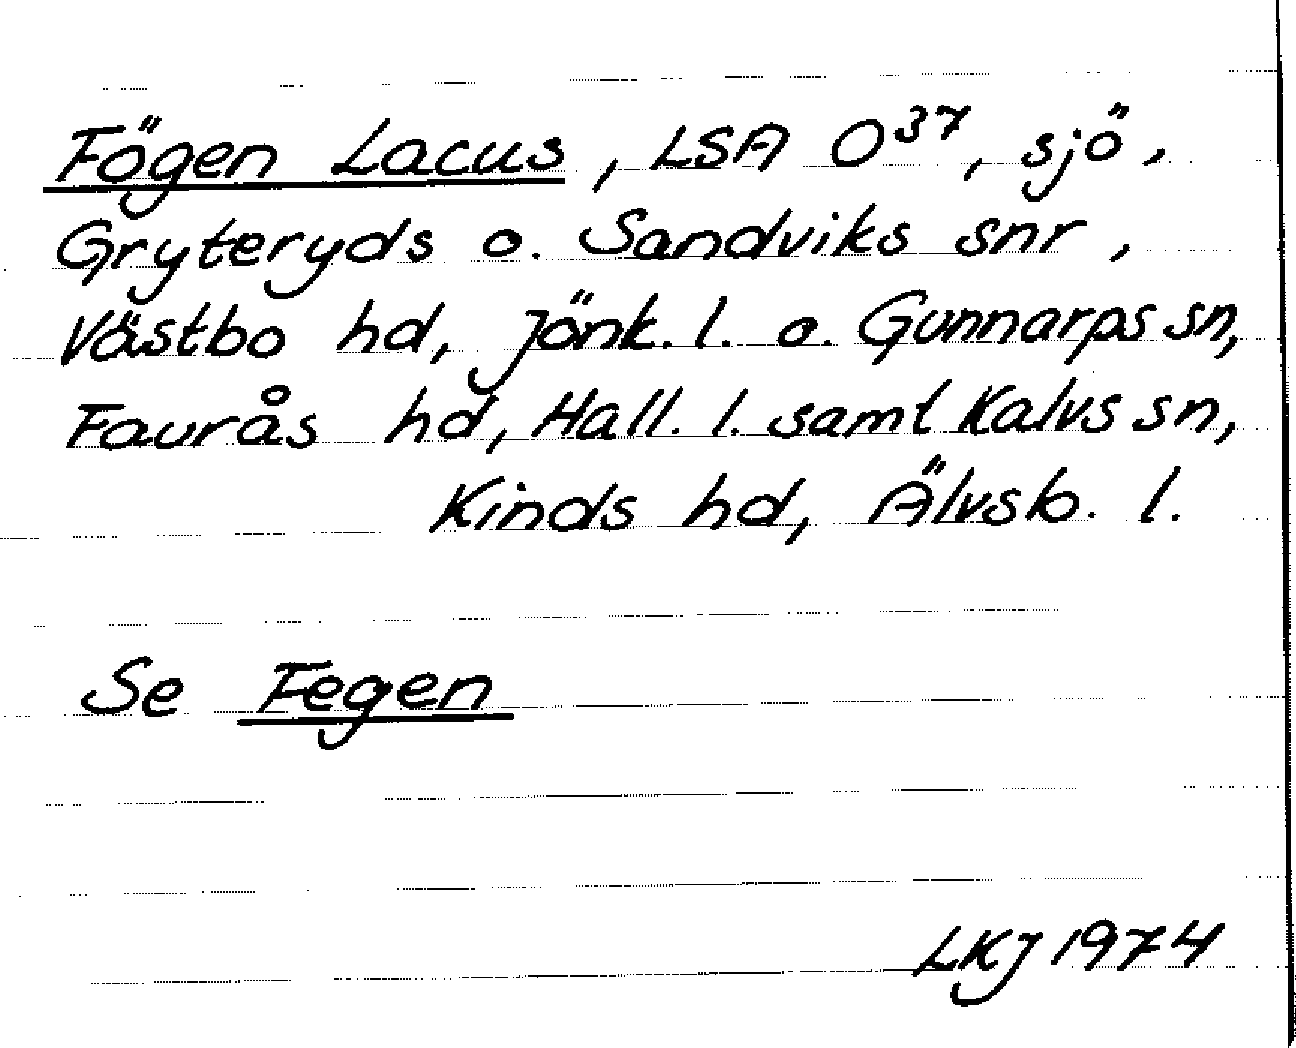 Fögen Lacus, LSA O³⁷, sjö,
Gryteryds o. Sandviks snr,
Västbo hd, Jönk. l. o. Gunnarps sn,
Faurås hd, Hall. l. samt Kalvs sn,
Kinds hd, Älvsb. l.
Se Fegen
LKJ 1974